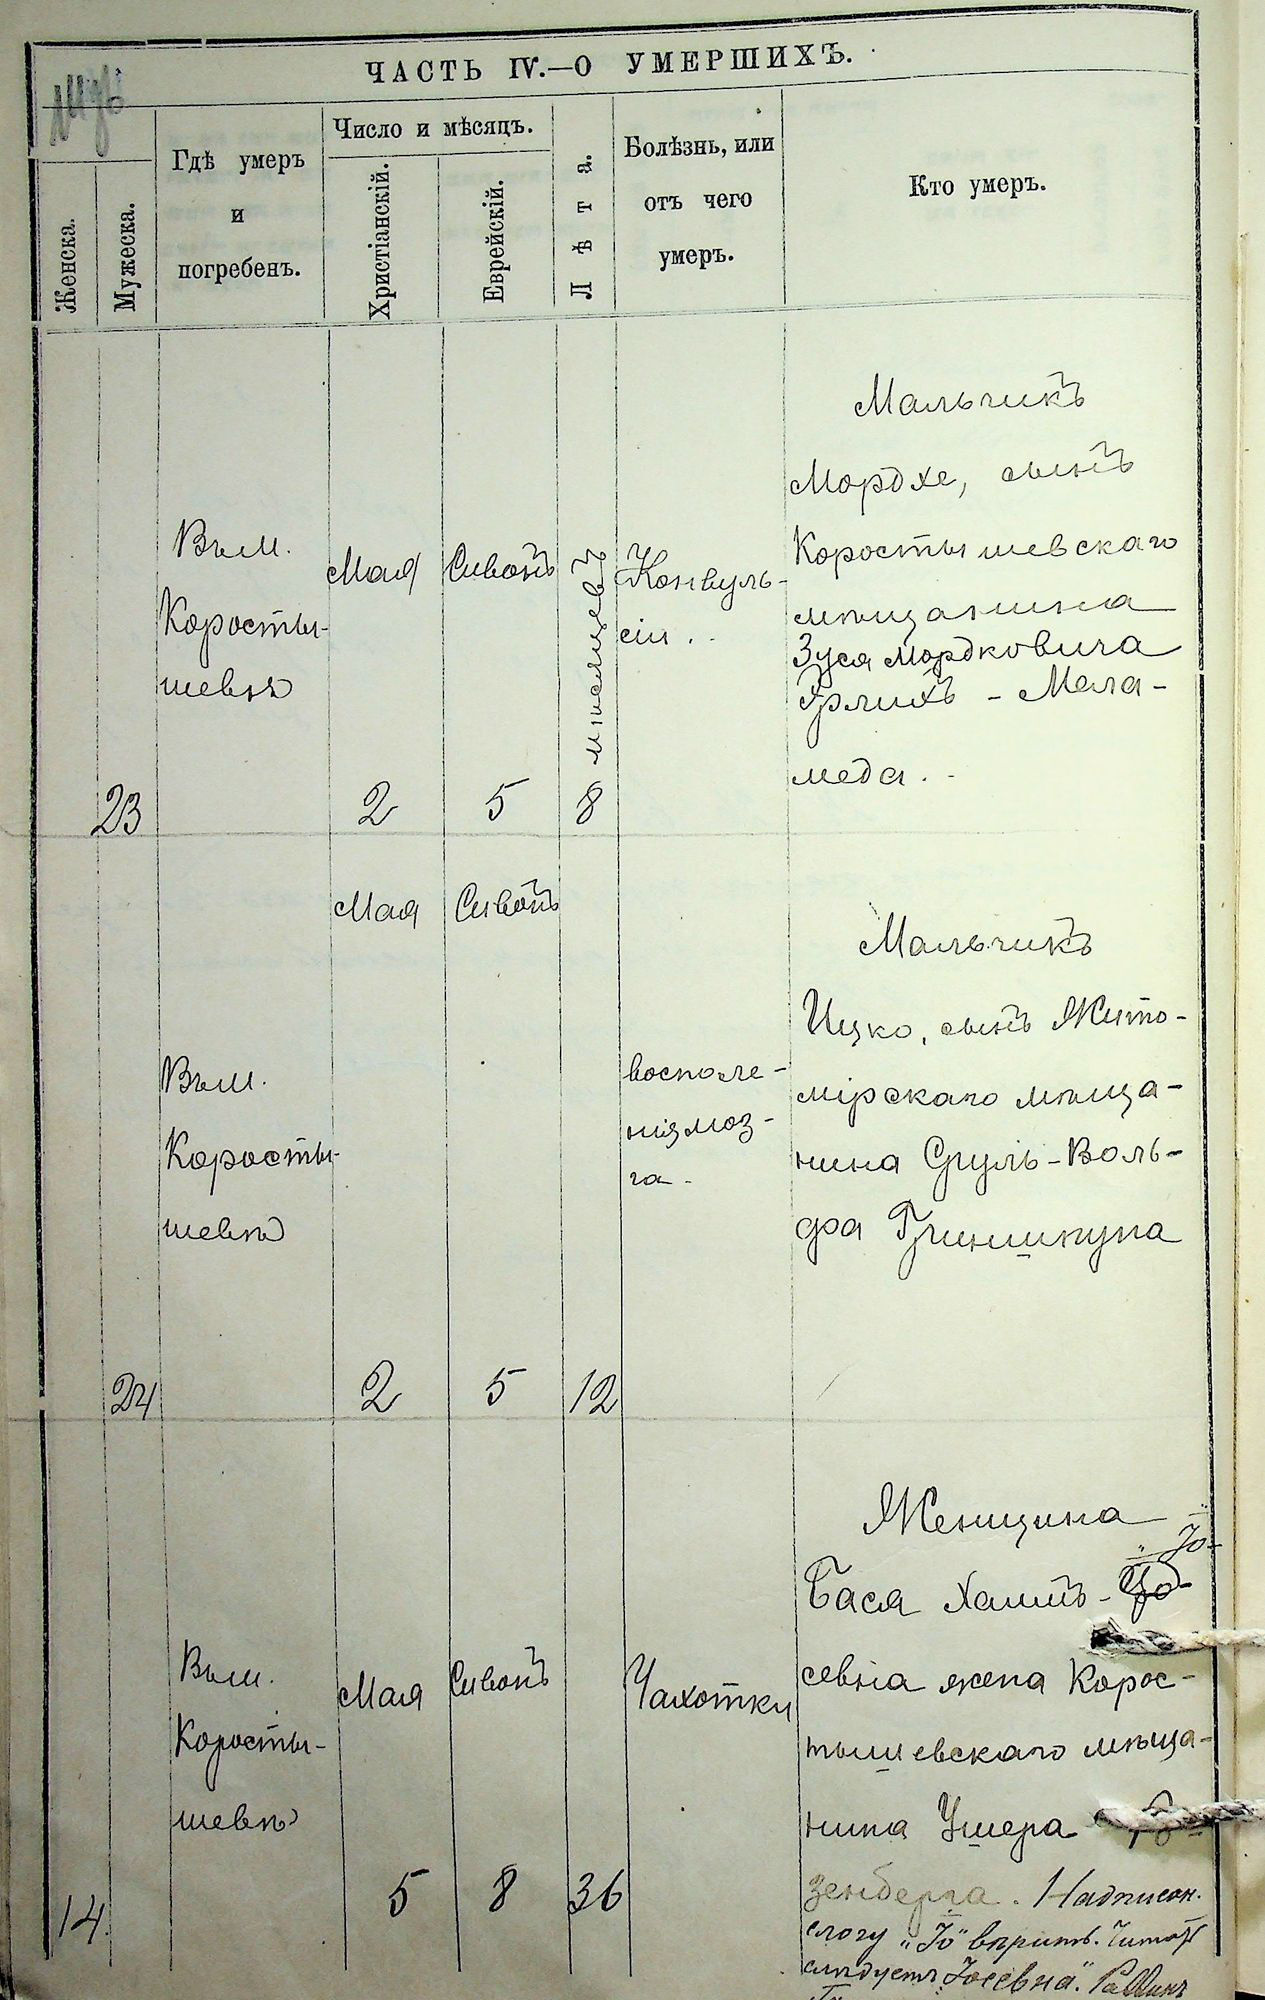 ЧАСТЬ IV.—О УМЕРШИХЪ.
Женска.
Мужеска.
Гдѣ умеръ
и
погребенъ.
Число и мѣсяцъ.
Христіанскій.
Еврейскій.
Лѣта.
Болѣзнь, или
отъ чего
умеръ.
Кто умеръ.
23
Въ м.
Коросты-
шевѣ
Мая
2
Сивонъ
5
8 мѣсяцевъ
Конвуль-
сіи..
Мальчикъ
Мордхе, сынъ
Коростышевскаго
мѣщанина
Зуся Мордковича
Эрлихъ - Мела-
меда..
24
Въ м.
Коросты-
шевѣ
Мая
2
Сивонъ
5
12
восполе-
нія моз-
га.
Мальчикъ
Ицко, сынъ Жито-
мірскаго мѣща-
нина Сруль-Воль-
фа Гриншпуна
14
Въ м.
Коросты-
шевѣ
Мая
5
Сивонъ
8
36
Чахотки
Женщина
„Іо-
Бася Хаимъ-
севна жена Корос-
тышевскаго мѣща-
нина Ушера Ро-
зенберга. Надписан.
слогу „Іо“ вѣрить. Читать
слѣдуетъ „Іосевна“. Раввинъ